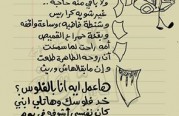 ولا باقي منه حاجه ..
غير شوية كراريس
و شنطة فاضيه وساعة واقفه
و بقعة حمراع القميص
أمه راحت لما سمعت
أن روحه الطاهرة طلعت
و إن مابقالهاش وريث
هاعمل ايه أنا بالفلوس ؟
خد فلوسك وهاتلي ابني
كان نفسي أشوفه في يوم